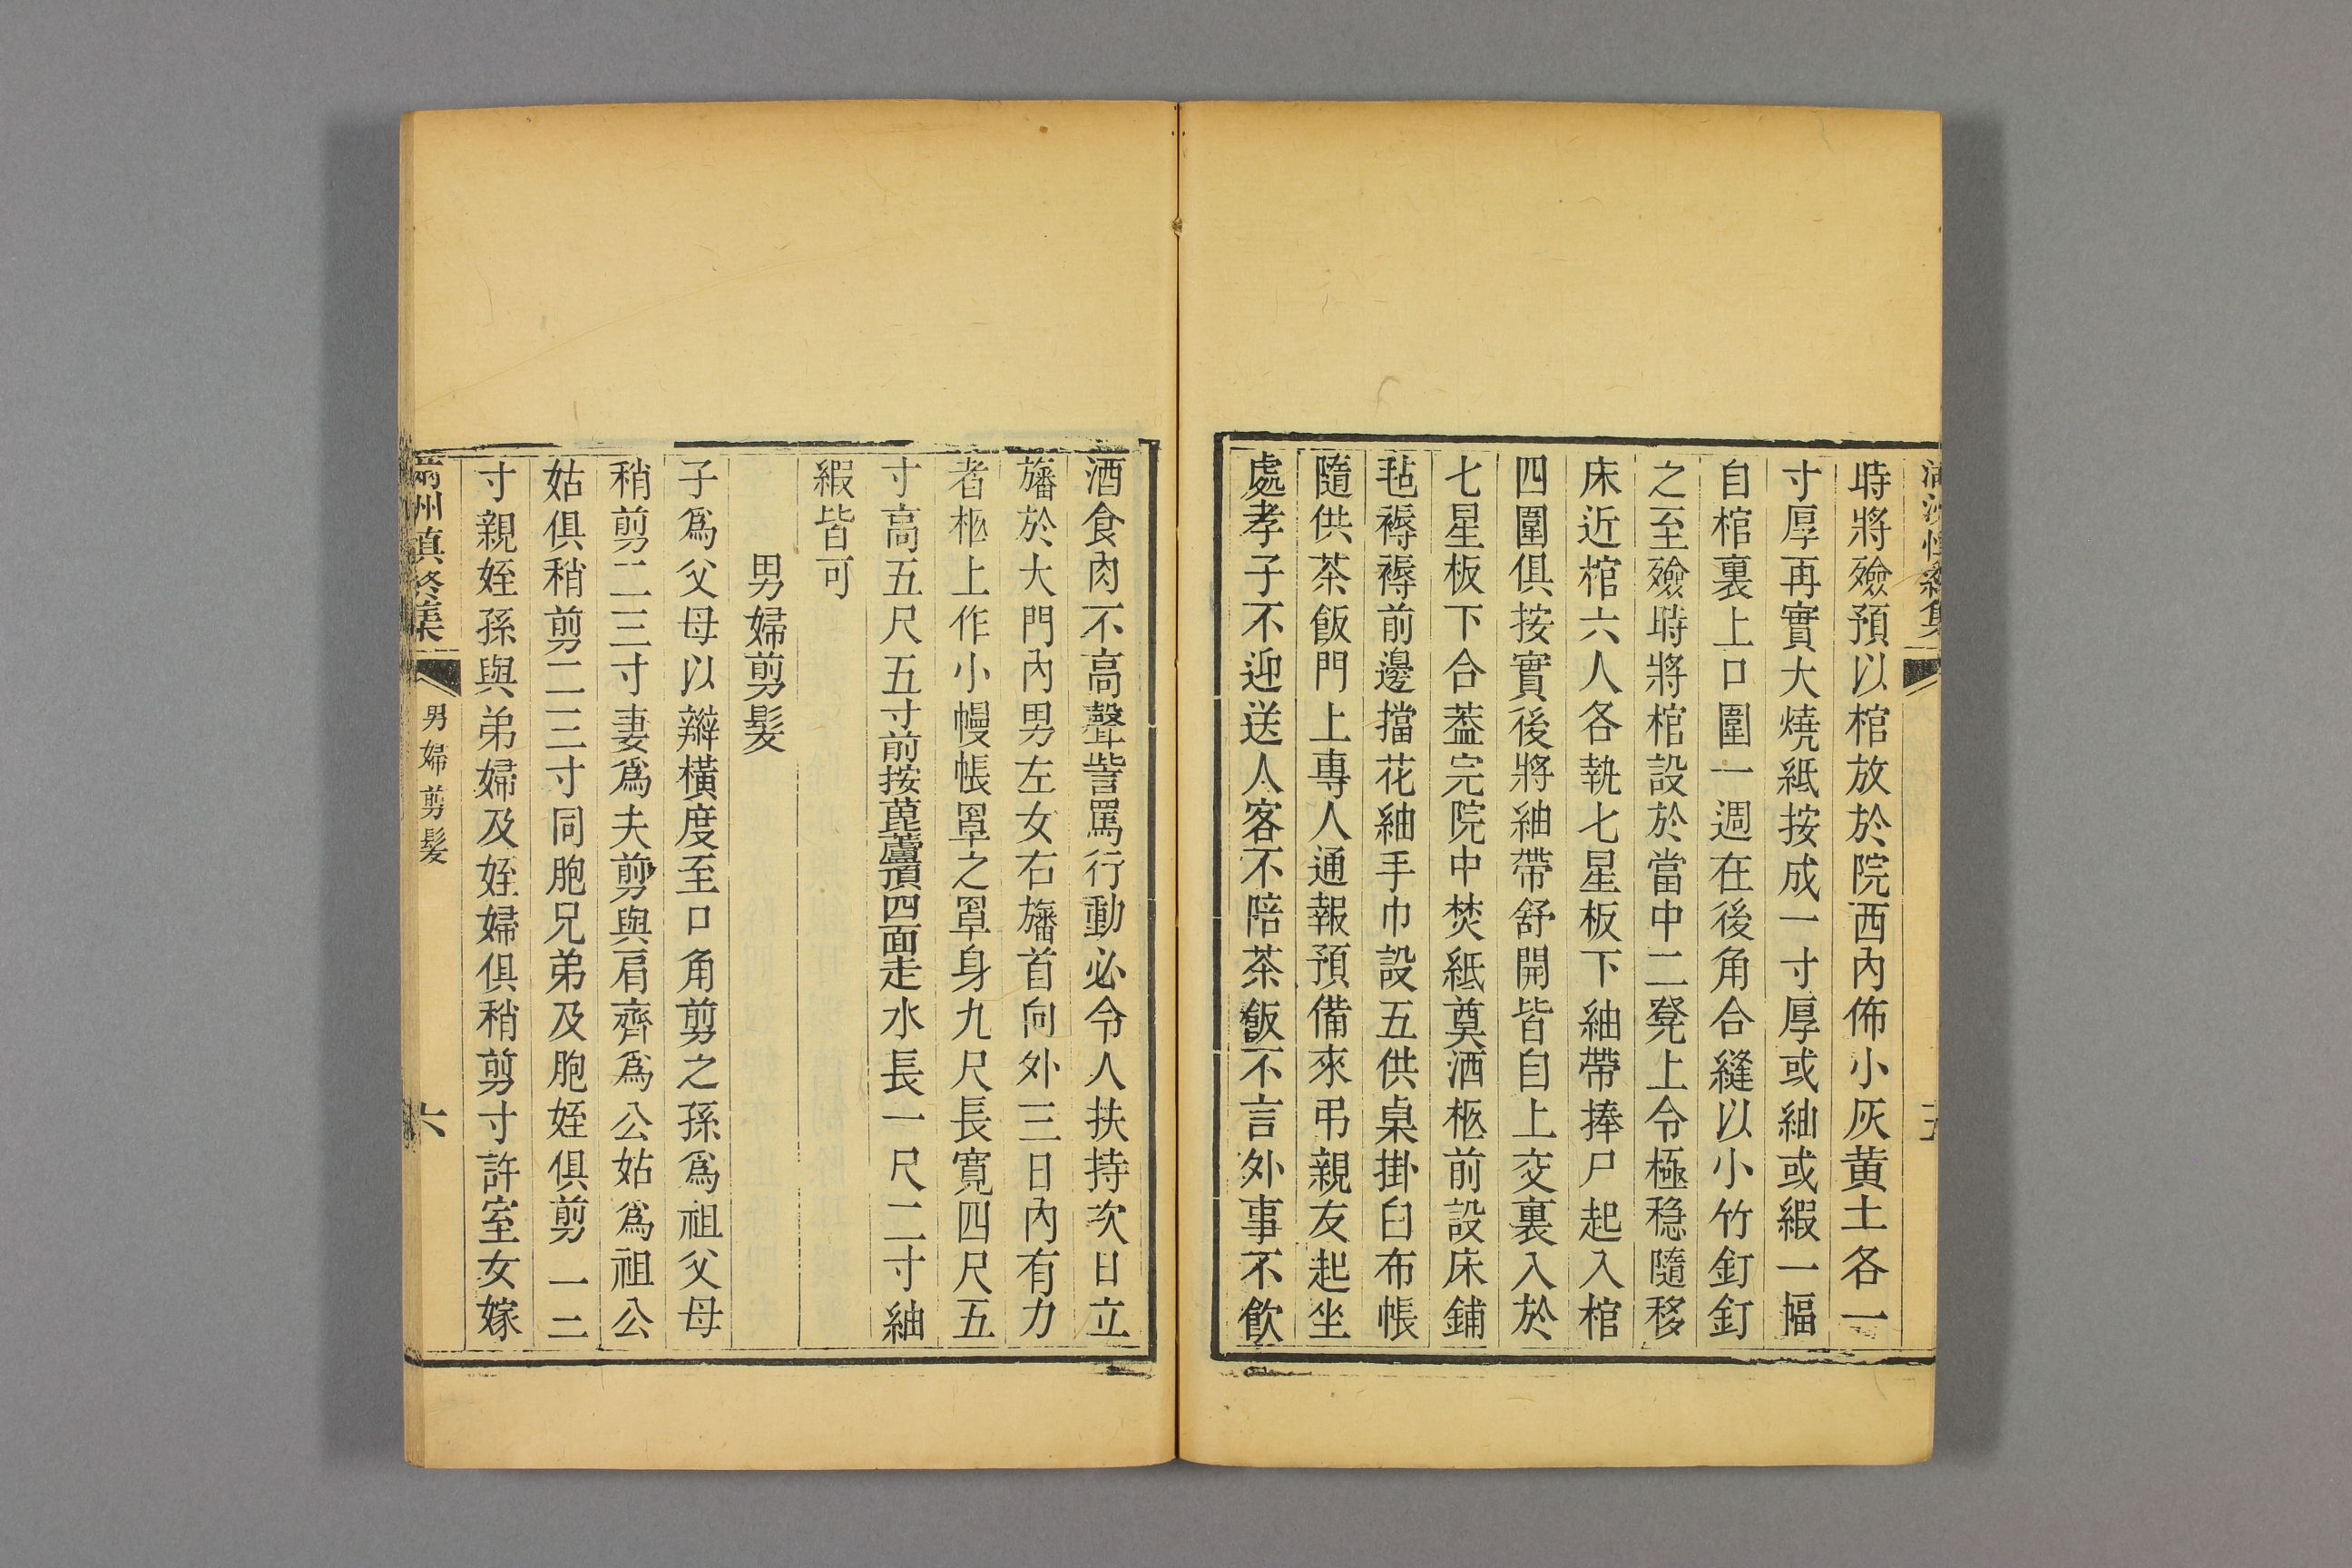 時將殮預以棺放於院西內佈小灰黄土各一
寸厚再實大燒紙按成一寸厚或紬或緞一幅
自棺裏上口圍一週在後角合縫以小竹釘釘
之至殮時將棺設於當中二凳上令極穏隨移
床近棺六人各執七星板下紬帶捧尸起入棺
四圍俱按實後將紬帶舒開皆自上交裏入於
七星板下合葢完院中焚紙奠酒柩前設床鋪
毡褥褥前邊擋花紬手巾設五供桌掛白布帳
隨供茶飯門上專人通報預備來弔親友起坐
處孝子不迎送人客不陪茶飯不言外事不飲
酒食肉不高聲訾罵行動必令人扶持次日立
旛於大門內男左女右旛首向外三日內有力
者柩上作小幔帳罩之罩身九尺長寬四尺五
寸高五尺五寸前按毘蘆頂四面走水長一尺二寸紬
緞皆可
男婦剪髮
子爲父母以辮橫度至口角剪之孫爲祖父母
稍剪二三寸妻爲夫剪與肩齊爲公姑爲祖公
姑俱稍剪二三寸同胞兄弟及胞姪俱剪一二
寸親姪孫與弟婦及姪婦俱稍剪寸許室女嫁
滿州慎終集
男婦剪髮
六